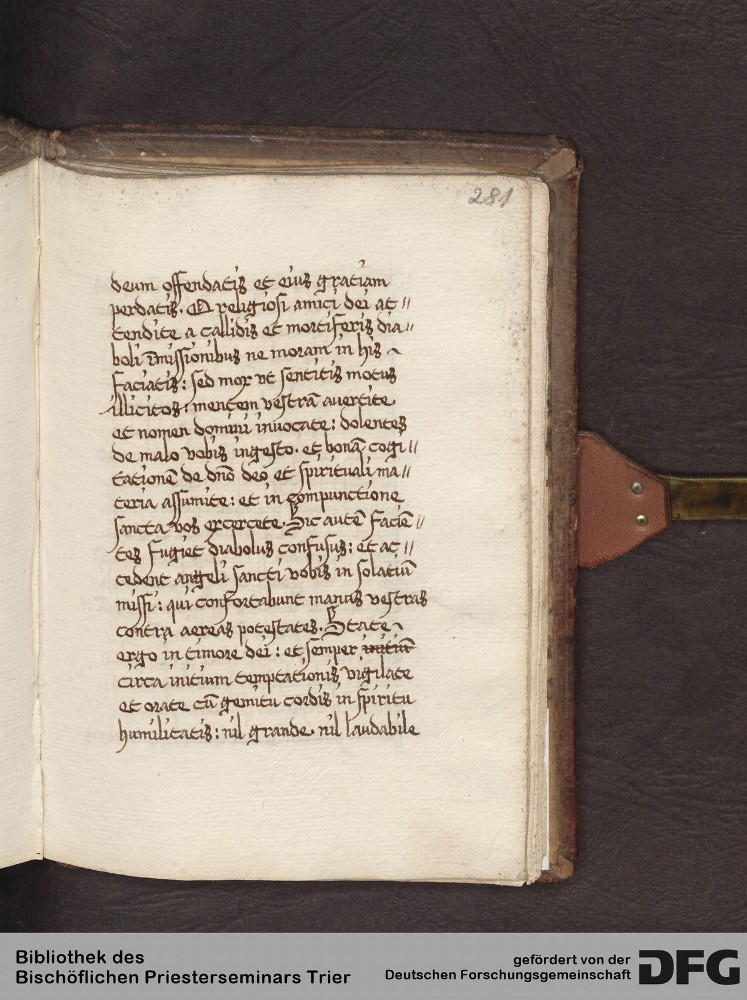 281
deum offendatis et eius gratiam
perdatis. O religiosi amici dei at //
tendite a callidis et mortiferis dia //
boli īmissionibus ne moram in his ~
faciatis: sed mox vt sentitis motus
illicitos: mentem vestrā auertite
et nomen domini inuocate: dolentes
de malo vobis ingesto. et bonā cogi //
tationē de dn̄o deo et spirituali ma //
teria assumite: et in compunctione
sancta vos exercete. Sic autē faciē //
tes fugiet diabolus confusus: et ac //
cedent angeli sancti vobis in solatiū
missi: qui confortabunt manus vestras
contra aereas potestates. State ~
ergo in timore dei: et semper initiū
circa initium temptationis vigilate
et orate cū gemitu cordis in spiritu
humilitatis: nil grande. nil laudabile
Bibliothek des
Bischöflichen Priesterseminars Trier
gefördert von der
Deutschen Forschungsgemeinschaft
DFG